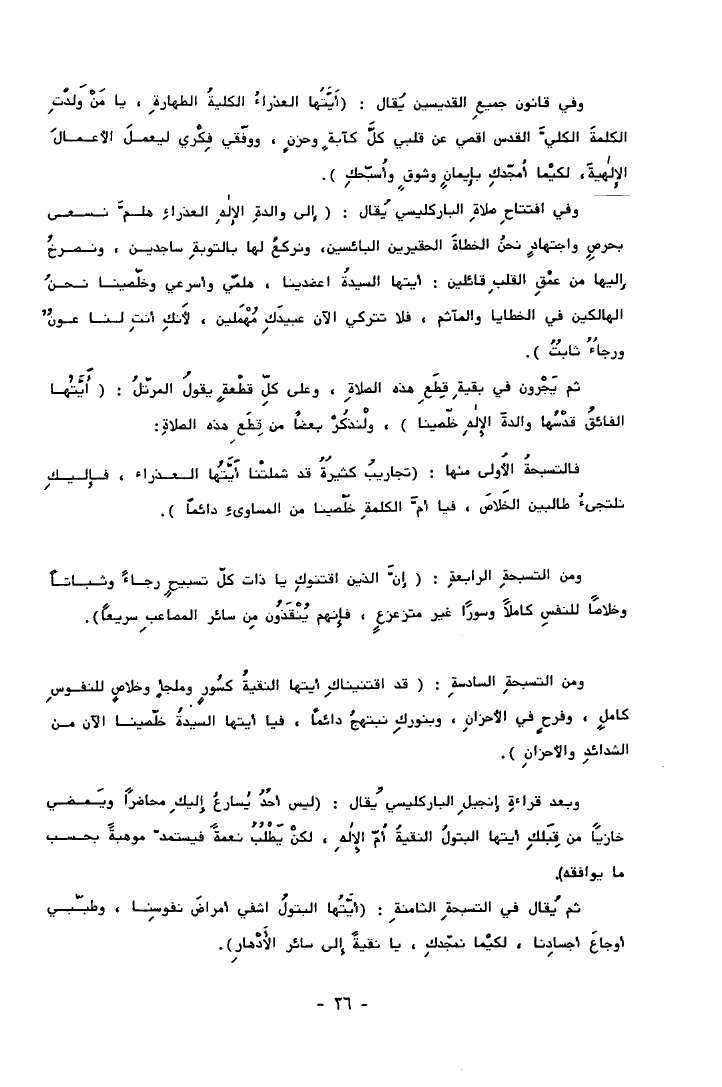 وفي قانون جميعِ القديسين يُقال : (أَيَّتُها العذراءُ الكليةُ الطهارةِ ، يا مَنْ وَلَدْتِ
الكلمةَ الكليَّ القدس اقصي عن قلبي كلَّ كآبةٍ وحزنٍ ، ووفّقي فِكْري ليعملَ الأعمالَ
الإلٰهيةَ، لكيْما أمجّدكِ بإيمانٍ وشوقٍ وأُسبّحكِ ).
وفي افتتاحِ صلاةِ الباركليسي يُقال : ( إلى والدةِ الإلٰهِ العذراءِ هلمَّ نسعى
بحرصٍ واجتهادٍ نحنُ الخطاةَ الحقيرين البائسين، ونركعُ لها بالتوبةِ ساجدين ، ونصرخُ
إليها من عمْقِ القلبِ قائلين : أيتها السيدةُ اعضدينا ، هلمّي وأسرعي وخلّصينا نحنُ
الهالكين في الخطايا والمآثم ، فلا تتركي الآن عبيدَكِ مُهْمَلين ، لأنكِ أنتِ لنا عونٌ
ورجاءٌ ثابتٌ ).
ثم يَجْرون في بقيةِ قِطَعِ هذه الصلاةِ ، وعلى كلِّ قطْعةٍ يقولُ المرتّلُ : ( أَيَّتُها
الفائقُ قدْسُها والدةَ الإلٰهِ خلّصينا ) ، ولْنذكُرْ بعضاً من قِطَع هذه الصلاةِ:
فالتسبحةُ الأُولى منها : (تجاريبُ كثيرةُ قد شملتْنا أَيَّتُها العذراء ، فإليكِ
نلتجىءُ طالبين الخَلاصَ ، فيا أمَّ الكلمةِ خلّصينا من المساوىءِ دائماً ).
ومن التسبحةِ الرابعةِ : ( إنَّ الذين اقتنوكِ يا ذات كلّ تسبيحٍ رجاءً وثباتاً
وخلاصًا للنفسِ كاملاً وسورًا غير متزعزعٍ ، فإنهم يُنْقَذُون مِن سائر المصاعبِ سريعاً).
ومن التسبحةِ السادسةِ : ( قد اقتنيناكِ أيتها النقيةُ كسُورٍ وملجإٍ وخلاصٍ للنفوسِ
كاملٍ ، وفرحٍ في الأحزانِ ، وبنوركِ نبتهجُ دائماً ، فيا أيتها السيدةُ خلّصينا الآن من
الشدائدِ والأحزانِ ).
وبعد قراءةِ إنجيلِ الباركليسي يُقال : (ليس أحدٌ يُسارعُ إليكِ محاضراً ويَمضي
خازياً من قِبَلكِ أيتها البتولُ النقيةُ أمَّ الإلٰهِ ، لكنْ يَطْلُبُ نعمةً فيستمدّ موهبةً بحسب
ما يوافقه).
ثم يُقال في التسبحةِ الثامنةِ : (أَيَّتُها البتولُ اشفي أمراضَ نفوسِنا ، وطبّبي
أوجاعَ أجسادِنا ، لكيْما نمجّدكِ ، يا نقيةً إلى سائر الأَدْهارِ).
- ٢٦ -